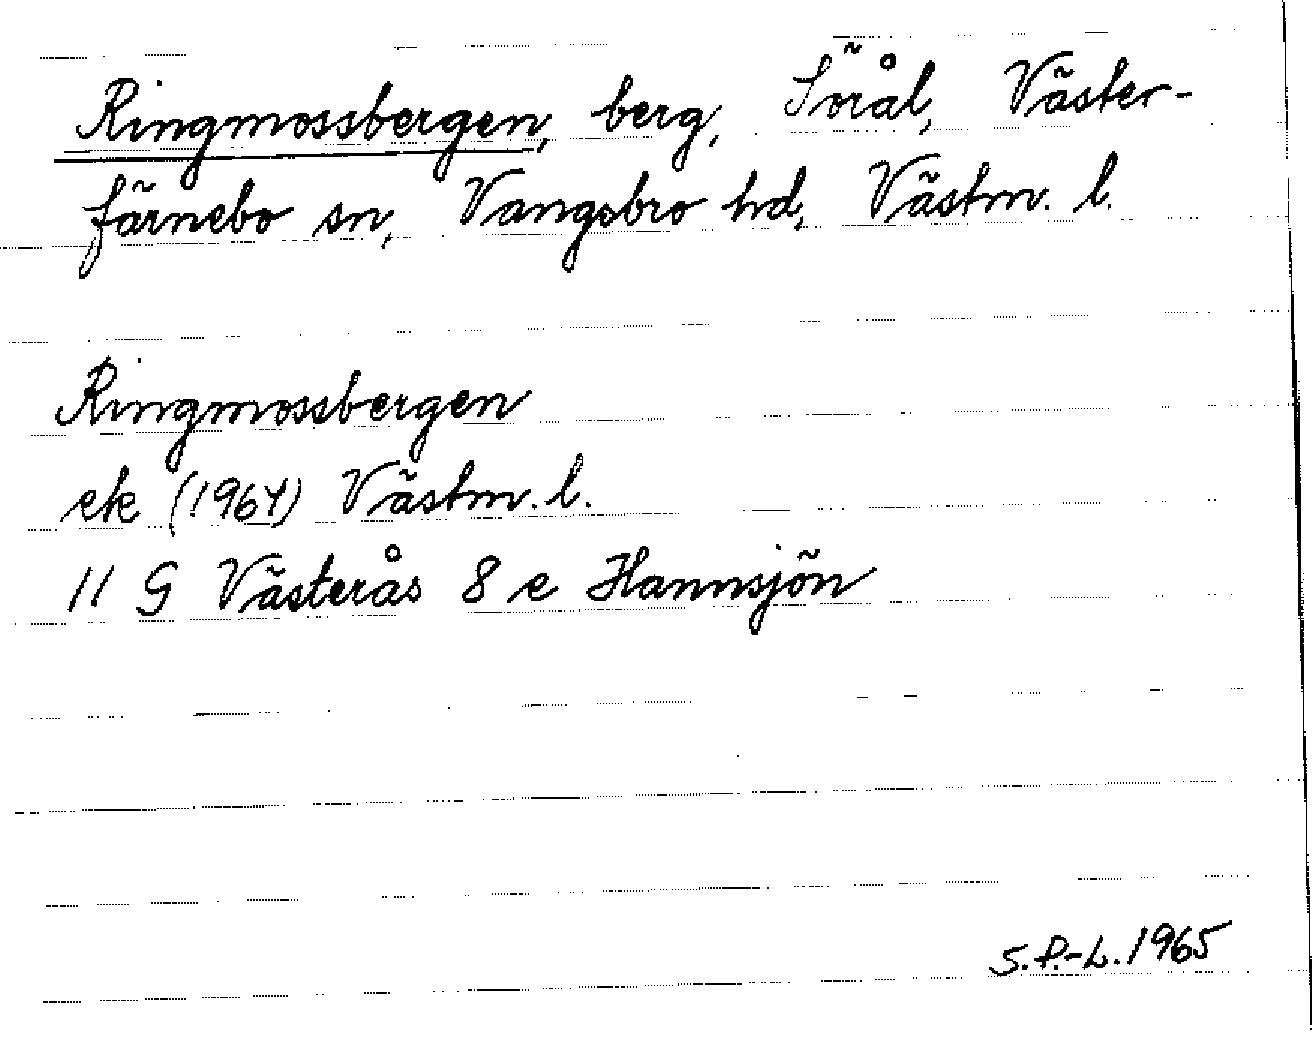 Ringmossbergen, berg, Sörål, Väster-
färnebo sn, Vangsbro hd, Västm. l.
Ringmossbergen
ek (1964) Västm. l.
11 G Västerås 8 e Hannsjön
S.P.-L. 1965